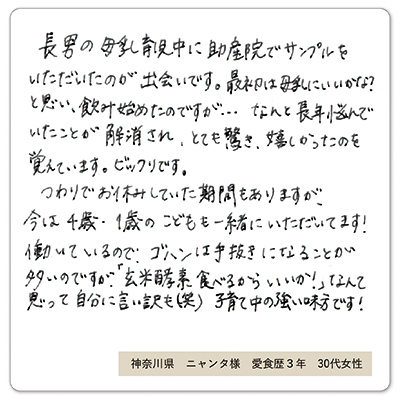 長男の母乳育児中に助産院でサンプルを
いただいたのが出会いです。最初は母乳にいいかな?
と思い、飲み始めたのですが… なんと長年悩んで
いたことが解消され、とても驚き、嬉しかったのを
覚えています。ビックリです。
つわりでお休みしていた期間もありますが、
今は4歳・1歳のこどもも一緒にいただいてます!
働いているので、ゴハンは手抜きになることが
多いのですが、「玄米酵素食べるからいいか!」なんて
思って自分に言い訳も(笑) 子育て中の強い味方です!
神奈川県 ニャンタ様 愛食歴3年 30代女性